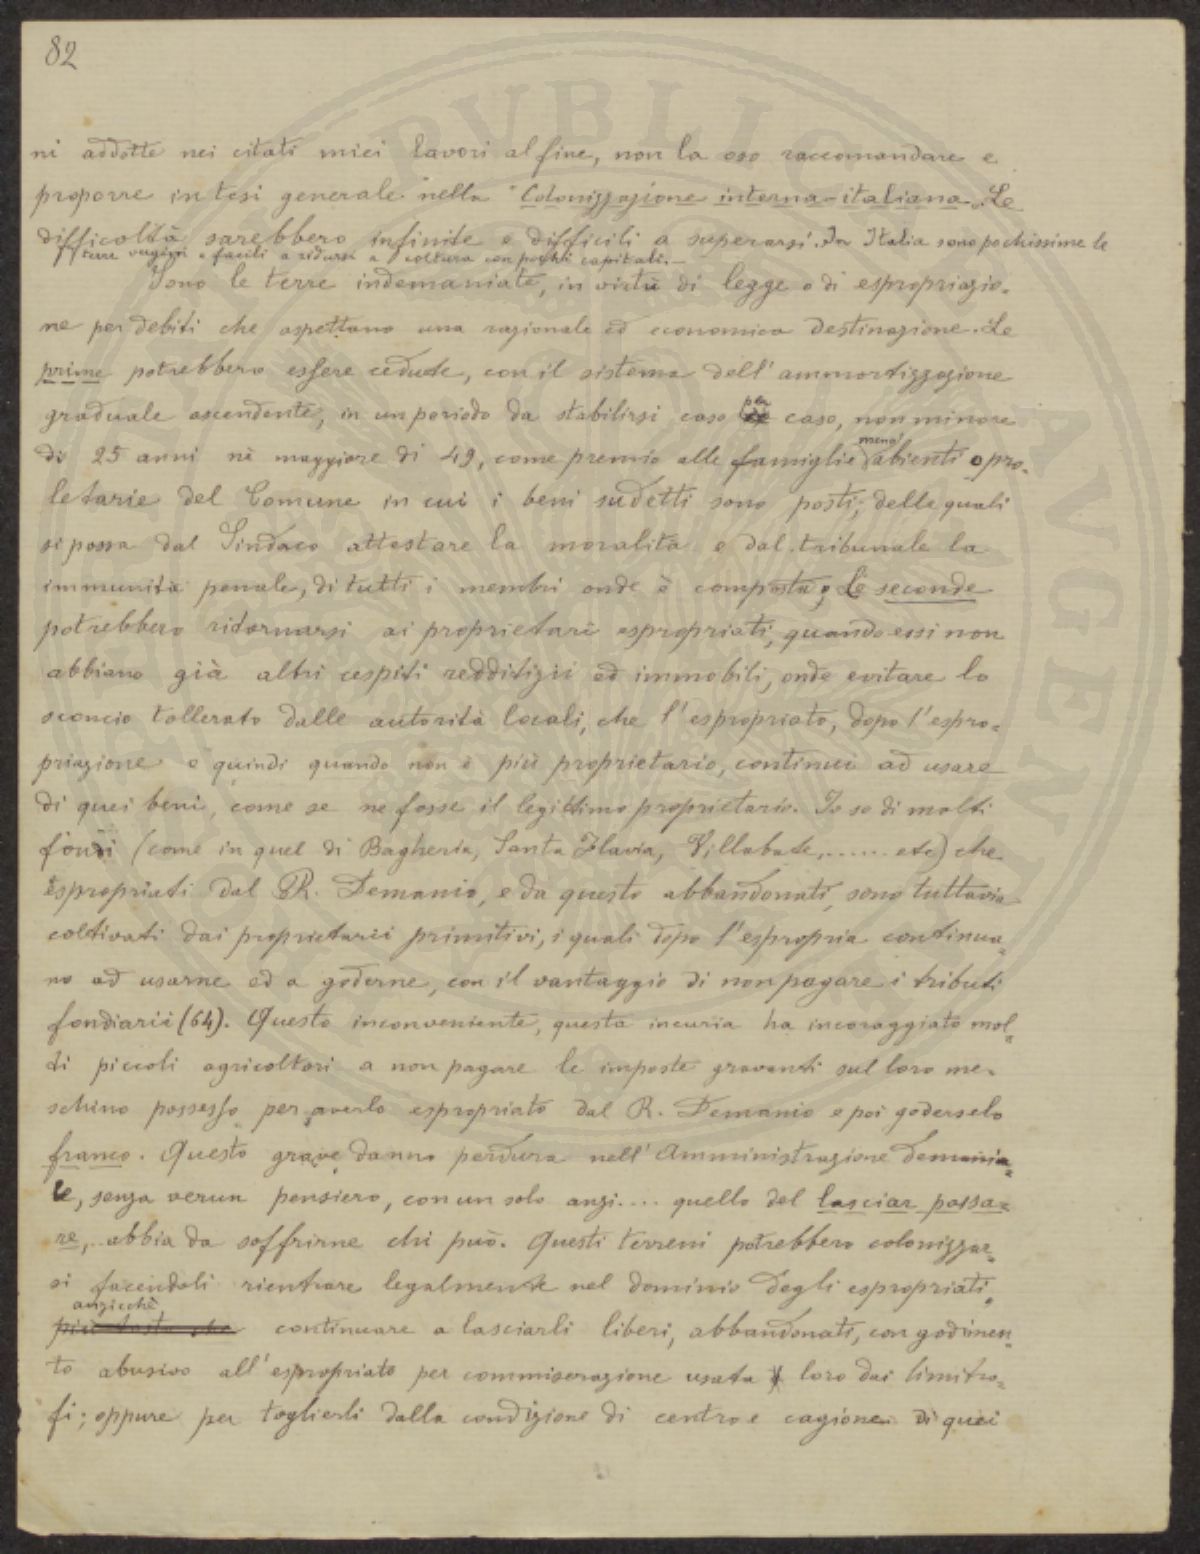 82
ni addotte nei citati miei lavori al fine, non la oso raccomandare e
proporre in tesi generale nella "Colonizzazione interna-italiana". Le
difficoltà sarebbero infinite e difficili a superarsi. In Italia sono pochissime le
terre vergini e facili a ridursi a coltura con pochi capitali.—
Sono le terre indemaniate, in virtù di legge o di espropriazio-
ne per debiti che aspettano una razionale ed economica destinazione. Le
prime potrebbero essere cedute, con il sistema dell'ammortizzazione
graduale ascendente, in un periodo da stabilirsi caso per caso, non minore
di 25 anni nè maggiore di 49, come premio alle famiglie meno abienti o pro-
letarie del Comune in cui i beni sudetti sono posti; delle quali
si possa dal Sindaco attestare la moralità e dal tribunale la
immunità penale, di tutti i membri onde è composta; Le seconde
potrebbero ridornarsi ai proprietari espropriati, quando essi non
abbiano già altri cespiti redditizii ed immobili, onde evitare lo
sconcio tollerato dalle autorità locali, che l'espropriato, dopo l'espro-
priazione e quindi quando non è più proprietario, continui ad usare
di quei beni, come se ne fosse il legittimo proprietario. Io so di molti
fondi (come in quel di Bagheria, Santa Flavia, Villabate,...... etc) che
espropriati dal R. Demanio, e da questo abbandonati, sono tuttavia
coltivati dai proprietarii primitivi, i quali dopo l'espropria continua-
no ad usarne ed a goderne, con il vantaggio di non pagare i tributi
fondiarii (64). Questo inconveniente, questa incuria ha incoraggiato mol-
ti piccoli agricoltori a non pagare le imposte gravanti sul loro me-
schino possesso per averlo espropriato dal R. Demanio e poi goderselo
franco. Questo grave danno perdura nell'Amministrazione demania-
le, senza verun pensiero, con un solo anzi.... quello del lasciar passa-
re,.. abbia da soffrirne chi può. Questi terreni potrebbero colonizzar-
si facendoli rientrare legalmente nel dominio degli espropriati,
anzicchè
più tosto che continuare a lasciarli liberi, abbandonati, con godimen-
to abusivo all'espropriato per commiserazione usata loro dai limitro-
fi; oppure per toglierli dalla condizione di centro e cagione di quei